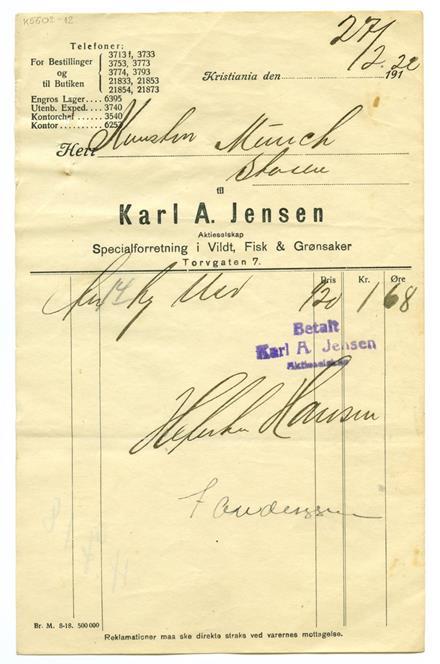 K5602-12
27/2.22
Telefoner:
For Bestillinger og til Butiken
3713 f, 3733
3753, 3773
3774, 3793
21833, 21853
21854, 21873
Engros Lager.... 6395
Utenb. Exped. ... 3740
Kontorchef ..... 3540
Kontor ......... 6252
Kristiania den 191
Herr Munch
Skøien
til
Karl A. Jensen
Aktieselskap
Specialforretning i Vildt, Fisk & Grønsaker
Torvgaten 7.
Pris Kr. Øre
14 kg 120 1 68
Betalt
Karl A. Jensen
Aktieselskap
Hansen
Br. M. 8-18. 500 000
Reklamationer maa ske direkte straks ved varernes mottagelse.